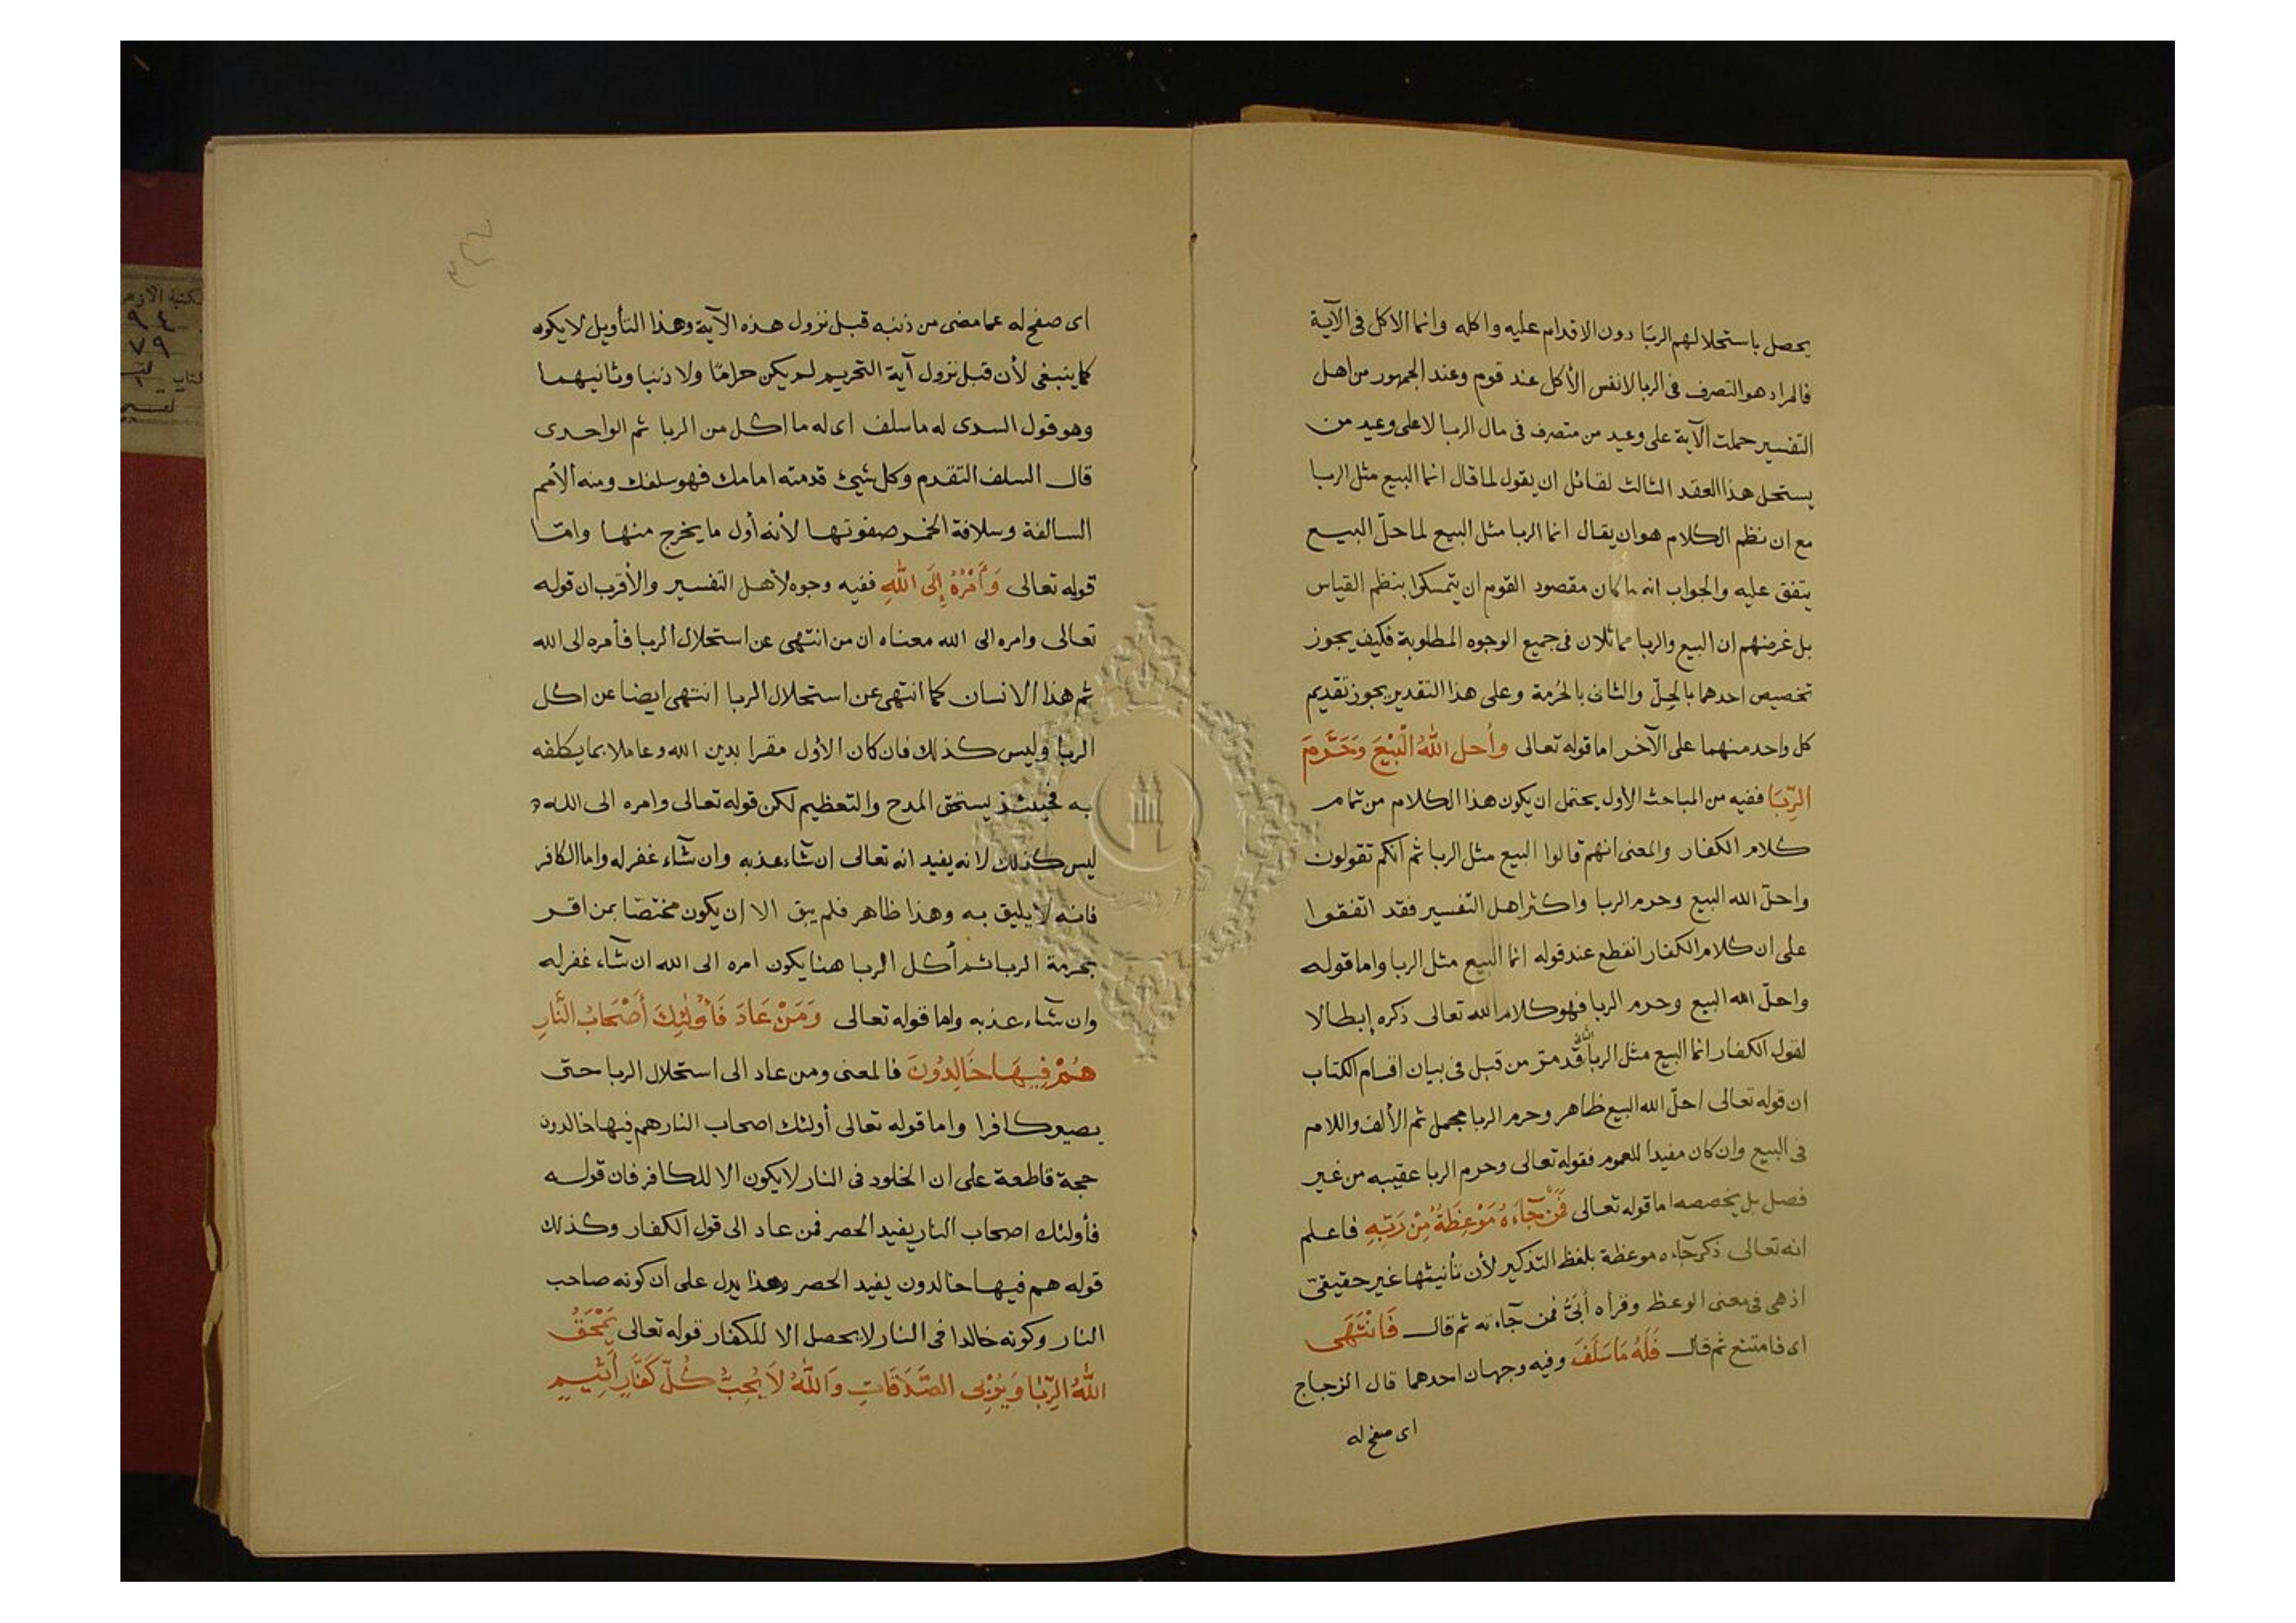 يحصل باستحلالهم الربا دون الاقدام عليه واكله وانما الاكل فى الآية
فالمراد هو التصرف فى الربا لانفس الأكل عند قوم وعند الجمهور من اهل
التفسير حملت الآية على وعيد من متصرف فى مال الربا لا على وعيد من
يستحل هذا العقد الثالث لقائل ان يقول لما قال انما البيع مثل الربا
مع ان نظم الكلام هو ان يقال انما الربا مثل البيع لما حلّ البيع
يتفق عليه والجواب انه ما كان مقصود القوم ان يتمسكوا بنظم القياس
بل غرضهم ان البيع والربا مماثلان فى جميع الوجوه المطلوبة فكيف يجوز
تخصيص احدهما بالحِلّ والثانى بالحُرمة وعلى هذا التقدير يجوز تقديم
كل واحد منهما على الآخر اما قوله تعالى وأحل اللهُ الْبَيْعَ وَحَرَّمَ
الرِّبَا ففيه من المباحث الأول يحتمل ان يكون هذا الكلام من تمام
كلام الكفار والمعنى انهم قالوا البيع مثل الربا ثم انكم تقولون
واحلّ الله البيع وحرم الربا واكثر اهل التفسير فقد اتفقوا
على ان كلام الكفار انقطع عند قوله انما البيع مثل الربا واما قوله
واحلّ الله البيع وحرم الربا فهو كلام الله تعالى ذكره إبطالا
لقول الكفار انما البيع مثل الربا الثانى قد مرّ من قبل فى بيان اقسام الكتاب
ان قوله تعالى احلّ الله البيع ظاهر وحرم الربا مجمل ثم الألف واللام
فى البيع وان كان مفيدا للعموم فقوله تعالى وحرم الربا عقيبه من غير
فصل بل يخصصه اما قوله تعالى فَمَنْ جَآءَهُ مَوْعِظَةٌ مِنْ رَبِّهِ فاعلم
انه تعالى ذكر جآءه موعظة بلفظ التذكير لأن تأنيثها غير حقيقىّ
اذ هى فى معنى الوعظ وقرأه أُبَىُّ فمن جآءته ثم قال فَانْتَهَى
اى فامتنع ثم قال فَلَهُ مَا سَلَفَ وفيه وجهان احدهما قال الزجاج
اى صفح له
اى صفح له عما مضى من ذنبه قبل نزول هذه الآية وهذا التأويل لا يكون
كما ينبغى لأن قبل نزول آية التحريم لم يكن حرامًا ولا ذنبا وثانيهما
وهو قول السدى له ما سلف اى له ما اكل من الربا ثم الواحدى
قال السلف التقدم وكل شيئ قدمته امامك فهو سلفك ومنه الأمم
السالفة وسلافة الخمر صفوتها لأنه أول ما يخرج منها وامّا
قوله تعالى وَأَمْرُهُ إِلَى اللهِ ففيه وجوه لأهل التفسير والأقرب ان قوله
تعالى وامره الى الله معناه ان من انتهى عن استحلال الربا فأمره الى الله
ثم هذا الانسان كما انتهى عن استحلال الربا انتهى ايضا عن اكل
الربا وليس كذلك فان كان الأول مقرا بدين الله وعاملا بما يكلفه
به فحينئذ يستحق المدح والتعظيم لكن قوله تعالى وامره الى الله
ليس كذلك لانه يفيد انه تعالى ان شآء عذبه وان شآء غفر له واما الكافر
فانه لا يليق به وهذا ظاهر فلم يبق الا ان يكون مختصّا بمن اقر
بحرمة الربا ثم أكل الربا هنا يكون امره الى الله ان شآء غفر له
وان شآء عذبه واما قوله تعالى وَمَنْ عَادَ فَأُولٰئِكَ أَصْحَابُ النَّارِ
هُمْ فِيهَا خَالِدُونَ فالمعنى ومن عاد الى استحلال الربا حتى
يصير كافرا واما قوله تعالى أولئك اصحاب النار هم فيها خالدون
حجة قاطعة على ان الخلود فى النار لا يكون الا للكافر فان قوله
فأولئك اصحاب النار يفيد الحصر فمن عاد الى قول الكفار وكذلك
قوله هم فيها خالدون يفيد الحصر وهذا يدل على أن كونه صاحب
النار وكونه خالدا فى النار لا يحصل الا للكفار قوله تعالى يَمْحَقُ
اللهُ الرِّبَا وَيُرْبِى الصَّدَقَاتِ وَاللهُ لاَ يُحِبُّ كُلَّ كَفَّارٍ أَثِيمٍ